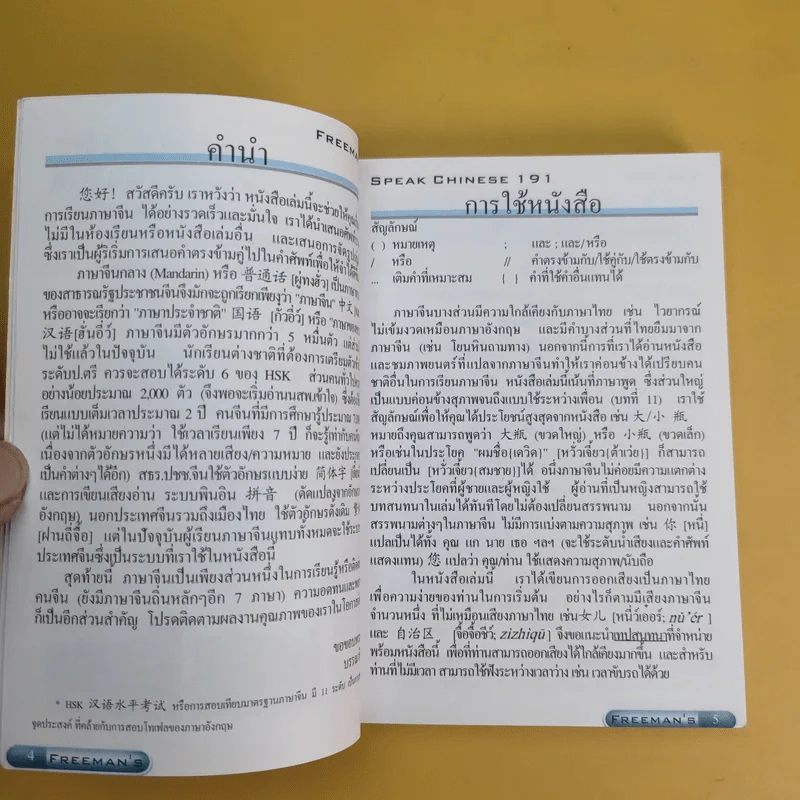 FREEMA
คำนำ
您好! สวัสดีครับ เราหวังว่า หนังสือเล่มนี้จะช่วยให้
การเรียนภาษาจีน ได้อย่างรวดเร็วและมั่นใจ เราได้นำเสนอ
ไม่มีในห้องเรียนหรือหนังสือเล่มอื่น และเสนอการจัด
ซึ่งเราเป็นผู้ริเริ่มการเสนอคำตรงข้ามคู่ไปในคำศัพท์เพื่อให้จำได้
ภาษาจีนกลาง (Mandarin) หรือ 普通话 [ผู่ทงฮั่ว] เป็นภาษา
ของสาธารณรัฐประชาชนจีนจึงมักจะถูกเรียกเพียงว่า "ภาษาจีน" 中文
หรืออาจจะเรียกว่า "ภาษาประจำชาติ" 国语 [กั๋วอี่ว์] หรือ
汉语 [ฮั่นอี่ว์] ภาษาจีนมีตัวอักษรมากกว่า 5 หมื่นตัว แต่
ไม่ใช้แล้วในปัจจุบัน นักเรียนต่างชาติที่ต้องการเตรียมตัว
ระดับป.ตรี ควรจะสอบได้ระดับ 6 ของ HSK ส่วนคนทั่วไป
อย่างน้อยประมาณ 2,000 ตัว (จึงพอจะเริ่มอ่านนสพ.เข้าใจ) ซึ่งต้อง
เรียนแบบเต็มเวลาประมาณ 2 ปี คนจีนที่มีการศึกษารู้ประมาณ
(แต่ไม่ได้หมายความว่า ใช้เวลาเรียนเพียง 7 ปี ก็จะรู้เท่ากับคน
เนื่องจากตัวอักษรหนึ่งมีได้หลายเสียง/ความหมาย และยัง
เป็นคำต่างๆได้อีก) สธร.ปชช.จีนใช้ตัวอักษรแบบง่าย 简体字
และการเขียนเสียงอ่าน ระบบพินอิน 拼音 (ดัดแปลงจาก
อังกฤษ) นอกประเทศจีนรวมถึงเมืองไทย ใช้ตัวอักษรดั้งเดิม
[ฝานถี่จื้อ] แต่ในปัจจุบันผู้เรียนภาษาจีนแทบทั้งหมดจะใช้
ประเทศจีนซึ่งเป็นระบบที่เราใช้ในหนังสือนี้
สุดท้ายนี้ ภาษาจีนเป็นเพียงส่วนหนึ่งในการเรียนรู้
คนจีน (ยังมีภาษาจีนถิ่นหลักๆอีก 7 ภาษา) ความอดทน
ก็เป็นอีกส่วนสำคัญ โปรดติดตามผลงานคุณภาพของเราใน
* HSK 汉语水平考试 หรือการสอบเทียบมาตรฐานภาษาจีน มี 11 ระดับ
จุดประสงค์ ที่คล้ายกับการสอบโทเฟลของภาษาอังกฤษ
4 FREEMAN'S
SPEAK CHINESE 191
การใช้หนังสือ
สัญลักษณ์
( ) หมายเหตุ ; และ ; และ/หรือ
/ หรือ // คำตรงข้ามกับ/ใช้คู่กับ/ใช้ตรงข้ามกับ
... เติมคำที่เหมาะสม { } คำที่ใช้คำอื่นแทนได้
ภาษาจีนบางส่วนมีความใกล้เคียงกับภาษาไทย เช่น ไวยากรณ์
ไม่เข้มงวดเหมือนภาษาอังกฤษ และมีคำบางส่วนที่ไทยยืมมาจาก
ภาษาจีน (เช่น โยนหินถามทาง) นอกจากนี้การที่เราได้อ่านหนังสือ
และชมภาพยนตร์ที่แปลจากภาษาจีนทำให้เราค่อนข้างได้เปรียบคน
ชาติอื่นในการเรียนภาษาจีน หนังสือเล่มนี้เน้นที่ภาษาพูด ซึ่งส่วนใหญ่
เป็นแบบค่อนข้างสุภาพจนถึงแบบใช้ระหว่างเพื่อน (บทที่ 11) เราใช้
สัญลักษณ์เพื่อให้คุณได้ประโยชน์สูงสุดจากหนังสือ เช่น 大/小 瓶
หมายถึงคุณสามารถพูดว่า 大瓶 (ขวดใหญ่) หรือ 小瓶 (ขวดเล็ก)
หรือเช่นในประโยค "ผมชื่อ{เดวิด}" [หวั่วเจี้ยว{ต้าเว่ย}] ก็สามารถ
เปลี่ยนเป็น [หวั่วเจี้ยว{สมชาย}]ได้ อนึ่งภาษาจีนไม่ค่อยมีความแตกต่าง
ระหว่างประโยคที่ผู้ชายและผู้หญิงใช้ ผู้อ่านที่เป็นหญิงสามารถใช้
บทสนทนาในเล่มได้ทันทีโดยไม่ต้องเปลี่ยนสรรพนาม นอกจากนั้น
สรรพนามต่างๆในภาษาจีน ไม่มีการแบ่งตามความสุภาพ เช่น 你 [หนี่]
แปลเป็นได้ทั้ง คุณ แก นาย เธอ ฯลฯ (จะใช้ระดับน้ำเสียงและคำศัพท์
แสดงแทน) 您 แปลว่า คุณ/ท่าน ใช้แสดงความสุภาพ/นับถือ
ในหนังสือเล่มนี้ เราได้เขียนการออกเสียงเป็นภาษาไทย
เพื่อความง่ายของท่านในการเริ่มต้น อย่างไรก็ตามมีเสียงภาษาจีน
จำนวนหนึ่ง ที่ไม่เหมือนเสียงภาษาไทย เช่น 女儿 [หนี่ว์เออร์; nǚ'ér]
และ 自治区 [จื้อจื้อชีว์; zìzhìqū] จึงขอแนะนำเทปสนทนาที่จำหน่าย
พร้อมหนังสือนี้ เพื่อที่ท่านสามารถออกเสียงได้ใกล้เคียงมากขึ้น และสำหรับ
ท่านที่ไม่มีเวลา สามารถใช้ฟังระหว่างเวลาว่าง เช่น เวลาขับรถได้ด้วย
FREEMAN'S 5